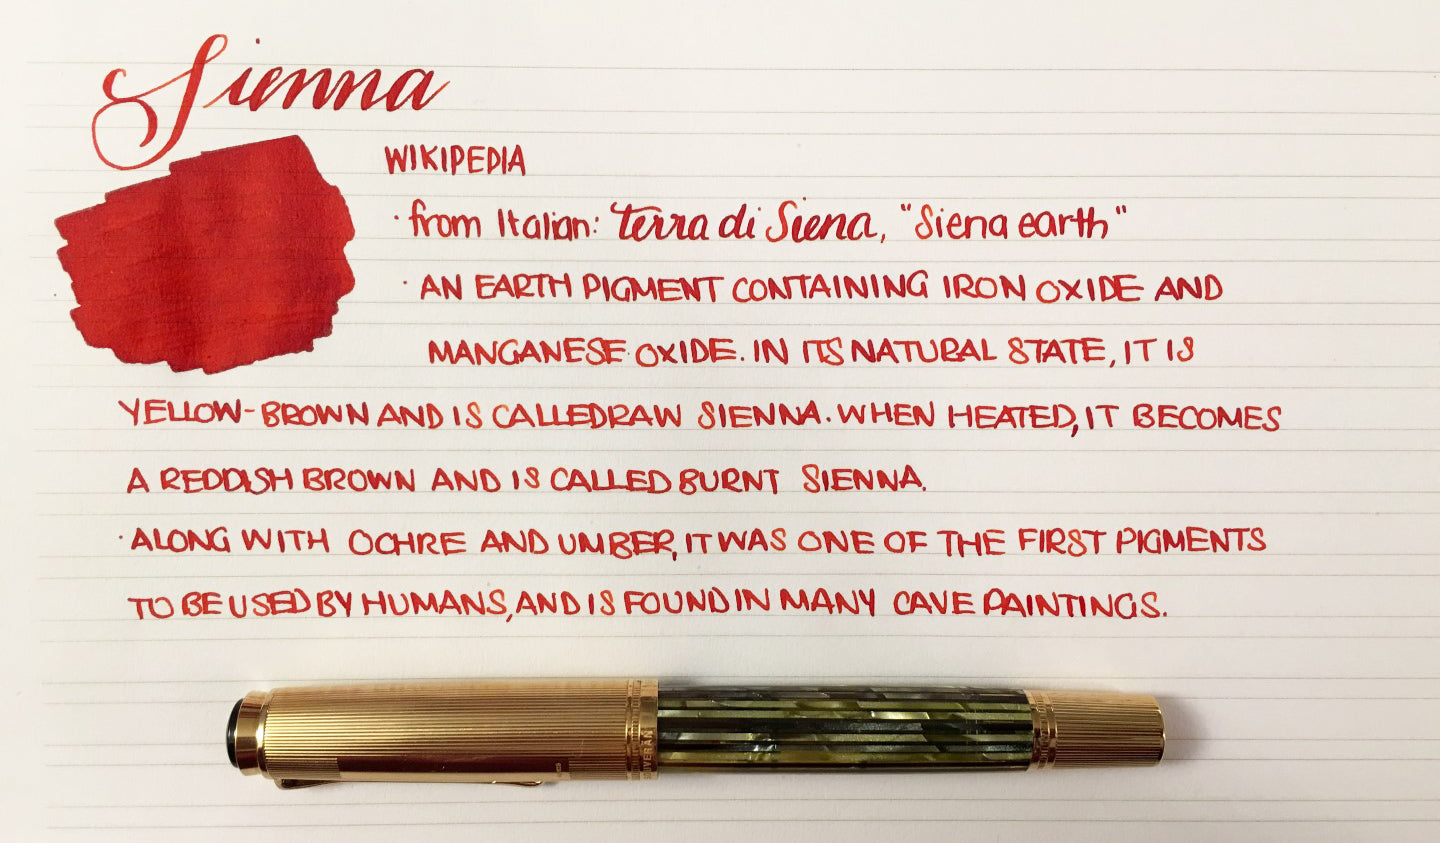 Sienna
WIKIPEDIA
· from Italian: terra di Siena, "Siena earth"
· AN EARTH PIGMENT CONTAINING IRON OXIDE AND
MANGANESE OXIDE. IN ITS NATURAL STATE, IT IS
YELLOW-BROWN AND IS CALLED RAW SIENNA. WHEN HEATED, IT BECOMES
A REDDISH BROWN AND IS CALLED BURNT SIENNA.
· ALONG WITH OCHRE AND UMBER, IT WAS ONE OF THE FIRST PIGMENTS
TO BE USED BY HUMANS, AND IS FOUND IN MANY CAVE PAINTINGS.